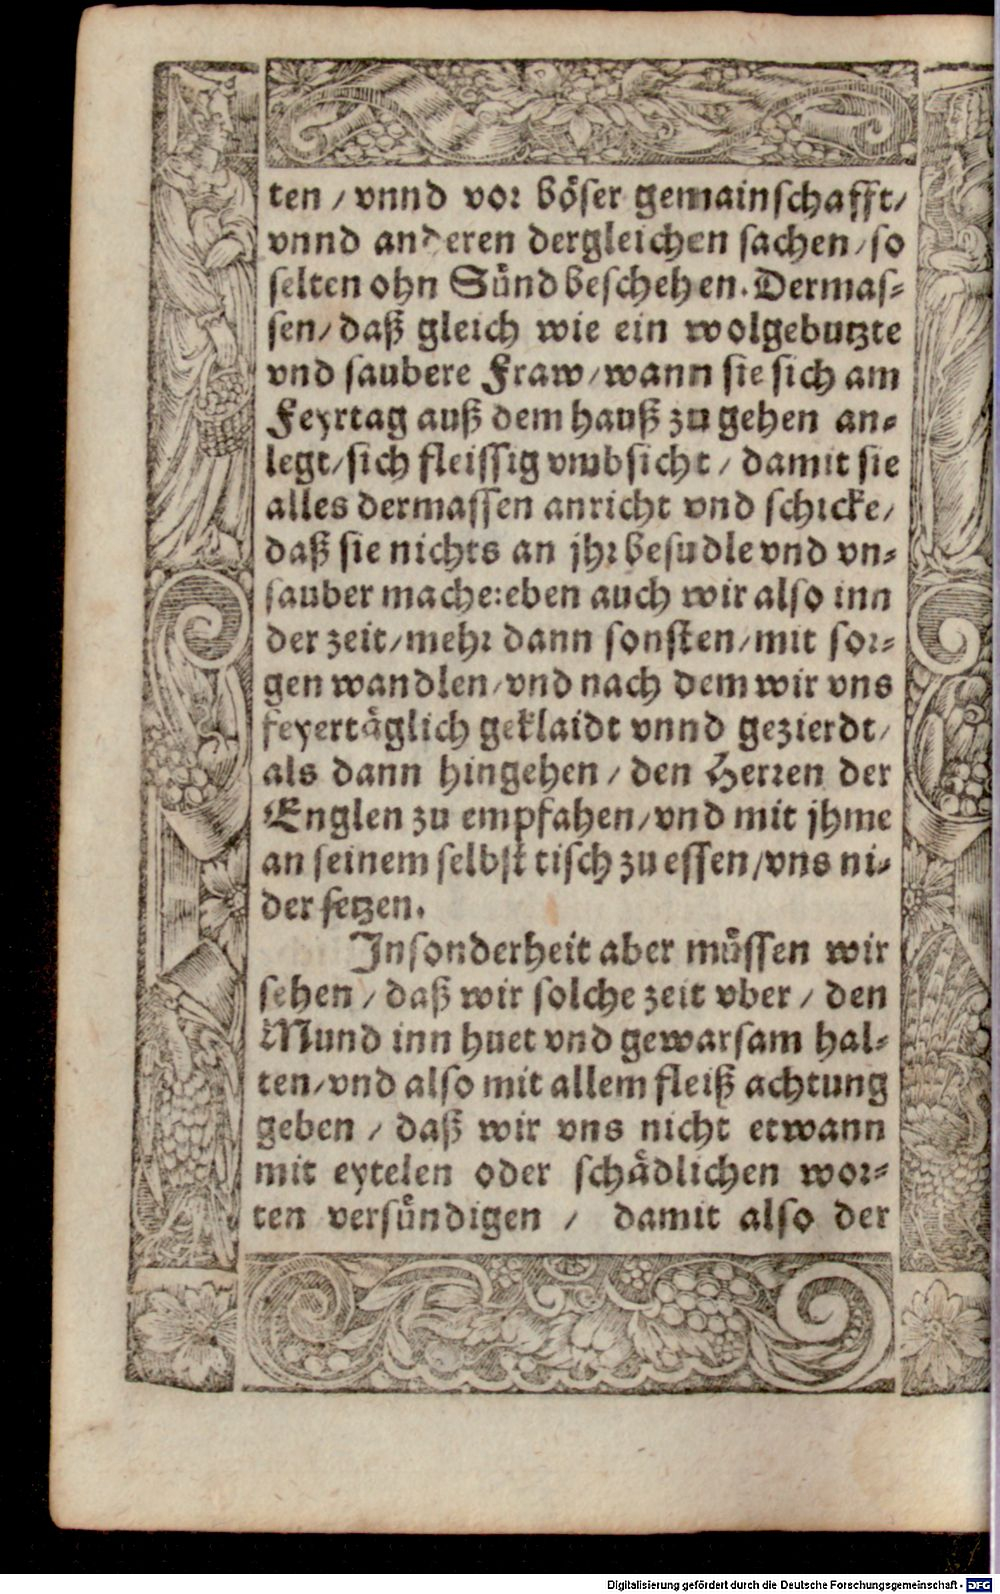 ten / vnnd vor böser gemainschafft/
vnnd anderen dergleichen sachen/so
selten ohn Sünd beschehen. Dermas-
sen/daß gleich wie ein wolgebutzte
vnd saubere Fraw/wann sie sich am
Feyrtag auß dem hauß zu gehen an-
legt/sich fleissig vmbsicht / damit sie
alles dermassen anricht vnd schicke/
daß sie nichts an jhr besudle vnd vn-
sauber mache:eben auch wir also inn
der zeit/mehr dann sonsten/mit sor-
gen wandlen/vnd nach dem wir vns
feyertäglich geklaidt vnnd gezierdt/
als dann hingehen / den Herren der
Englen zu empfahen/vnd mit jhme
an seinem selbst tisch zu essen/vns ni-
der setzen.
Insonderheit aber müssen wir
sehen / daß wir solche zeit vber / den
Mund inn huet vnd gewarsam hal-
ten/vnd also mit allem fleiß achtung
geben / daß wir vns nicht etwann
mit eytelen oder schädlichen wor-
ten versündigen / damit also der
Digitalisierung gefördert durch die Deutsche Forschungsgemeinschaft - DFG